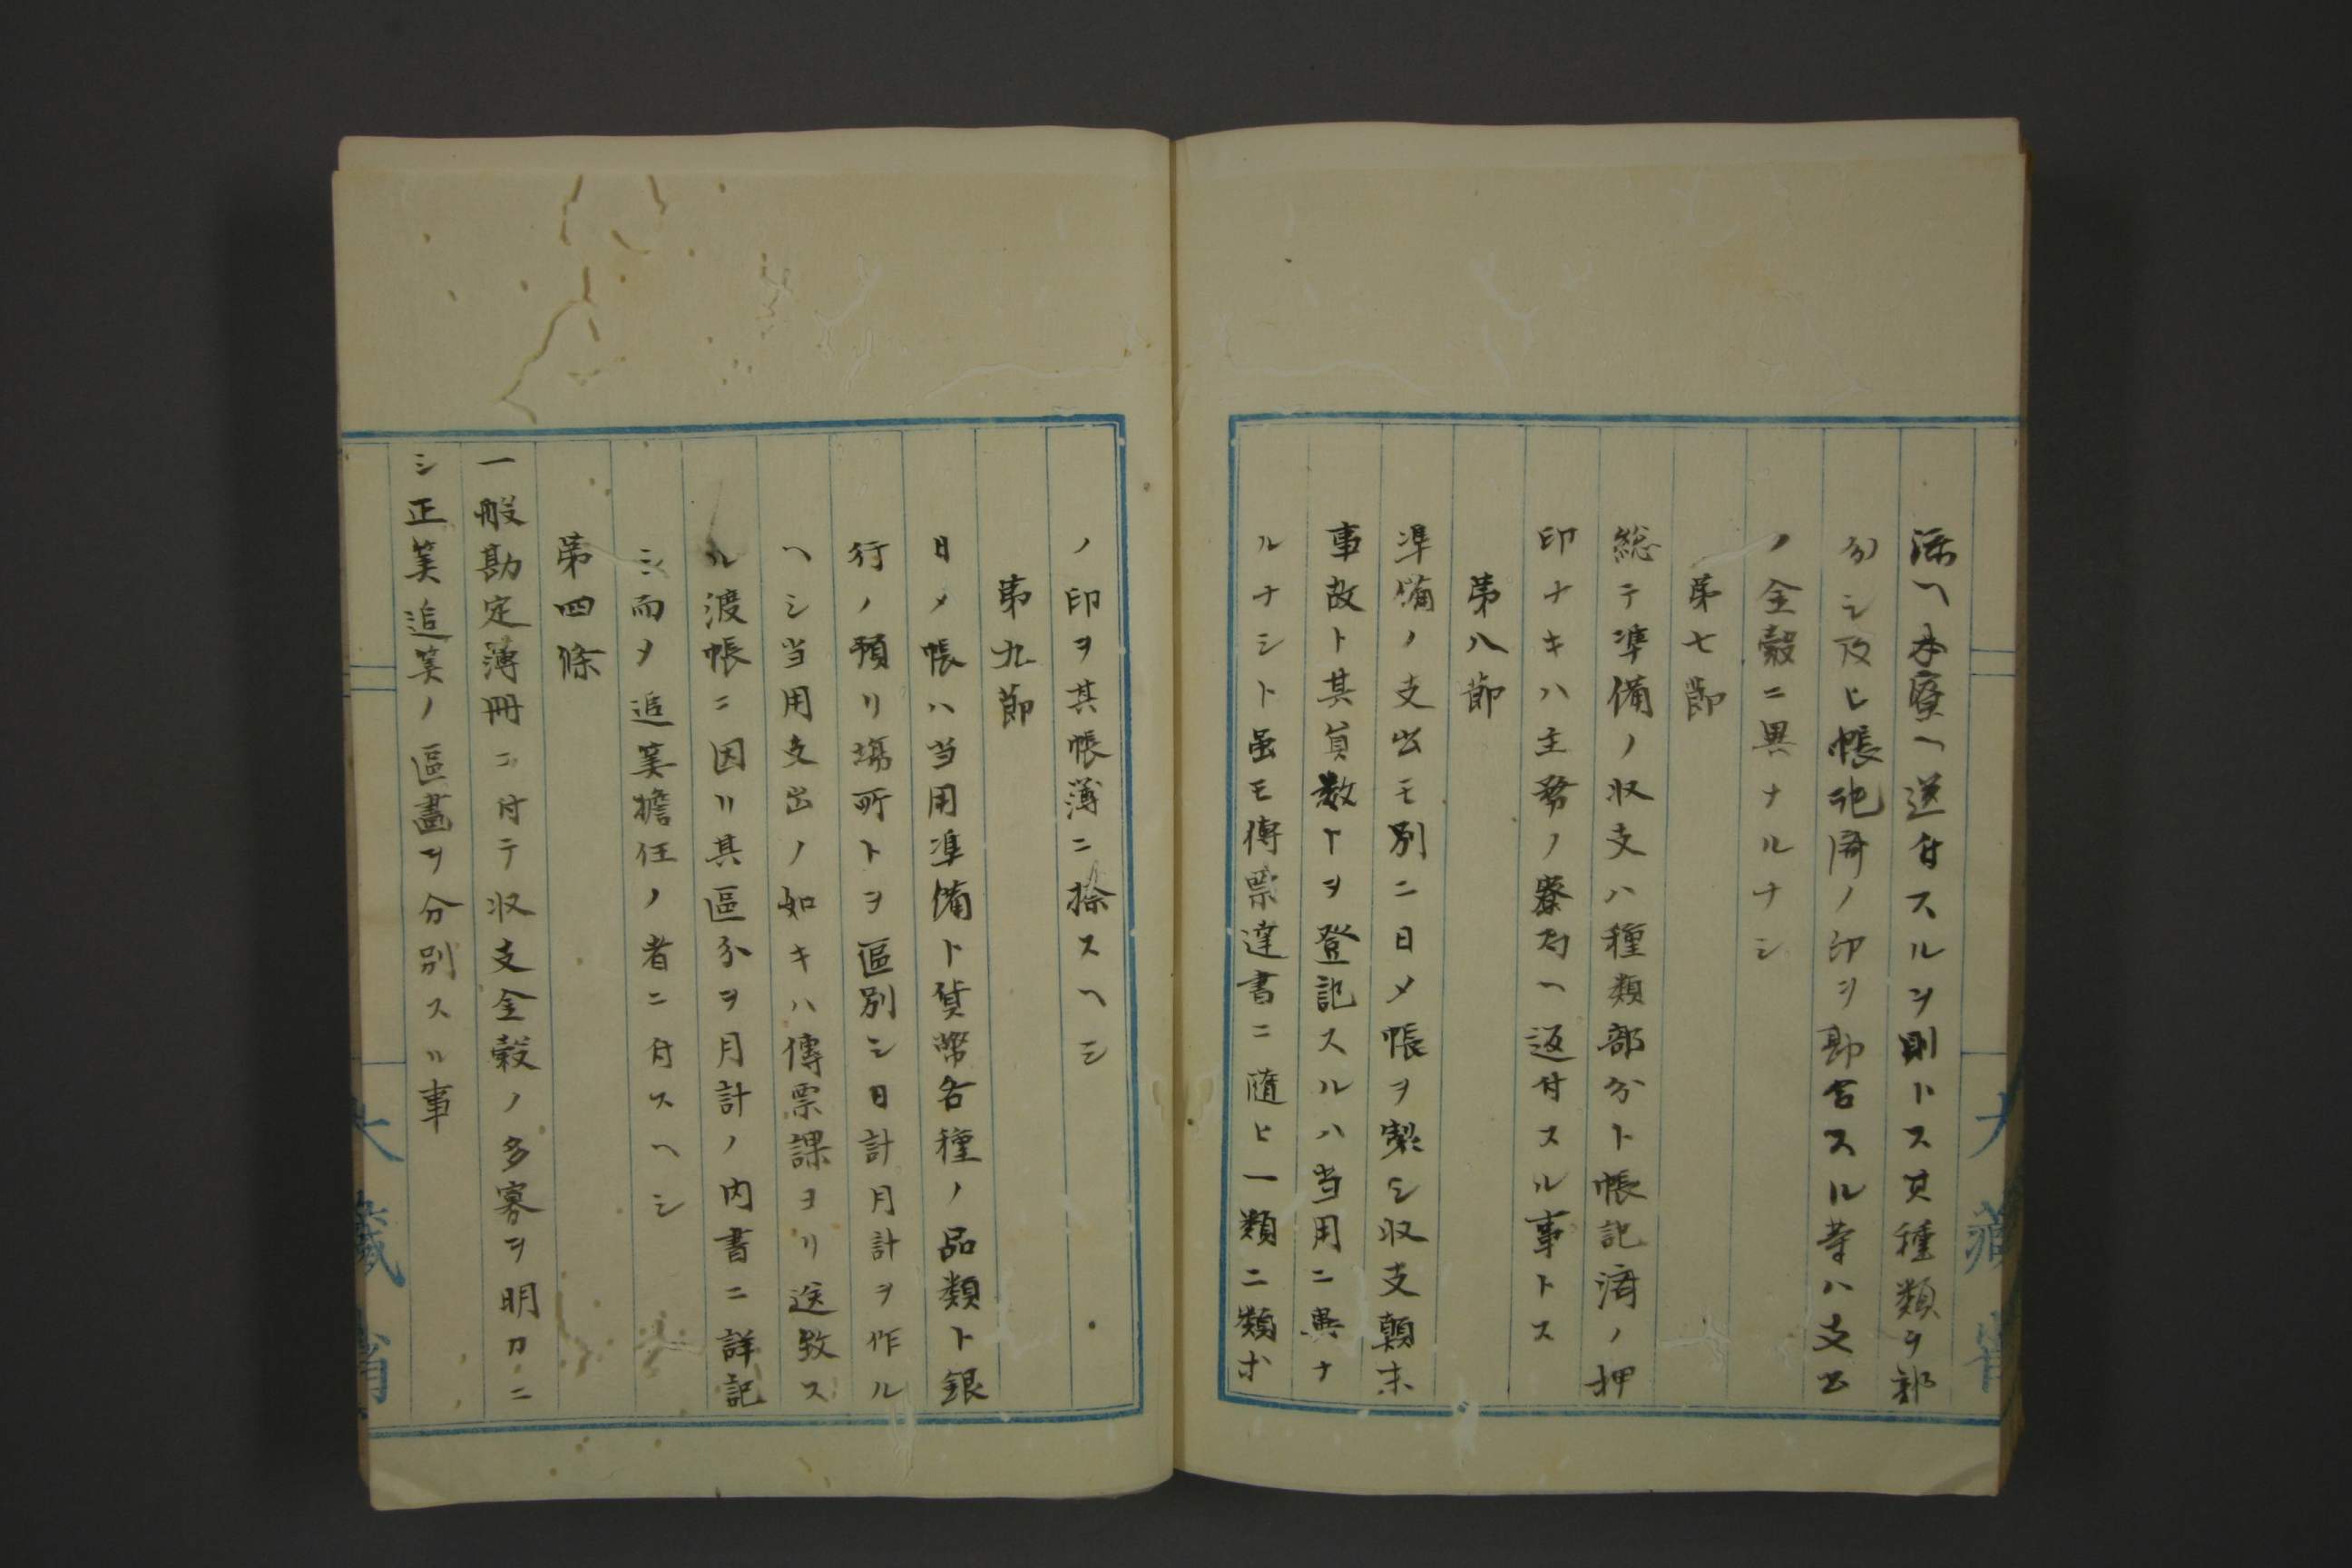 添ヘ本寮ヘ送付スルヲ則トス其種類ヲ部
分シ及ヒ帳記済ノ印ヲ勘合スル等ハ支出
ノ金穀ニ異ナルナシ
第七節
総テ準備ノ収支ハ種類部分ト帳記済ノ押
印ナキハ主務ノ寮局ヘ返付スル事トス
第八節
準備ノ支出モ別ニ日〆帳ヲ製シ収支顛末
事故ト其員数トヲ登記スルハ当用ニ異ナ
ルナシト虽モ傳票達書ニ随ヒ一類二類ホ
ノ印ヲ其帳薄ニ捺スヘシ
第九節
日〆帳ハ当用準備ト貨幣各種ノ品類ト銀
行ノ預リ場所トヲ區別シ日計月計ヲ作ル
ヘシ当用支出ノ如キハ傳票課ヨリ送致ス
ル渡帳ニ因リ其區分ヲ月計ノ内書ニ詳記
シ而〆追筭擔任ノ者ニ付スヘシ
第四條
一般勘定薄冊ニ付テ収支金穀ノ多寡ヲ明カニ
シ正筭追筭ノ區畫ヲ分別スル事
大藏省
大藏省